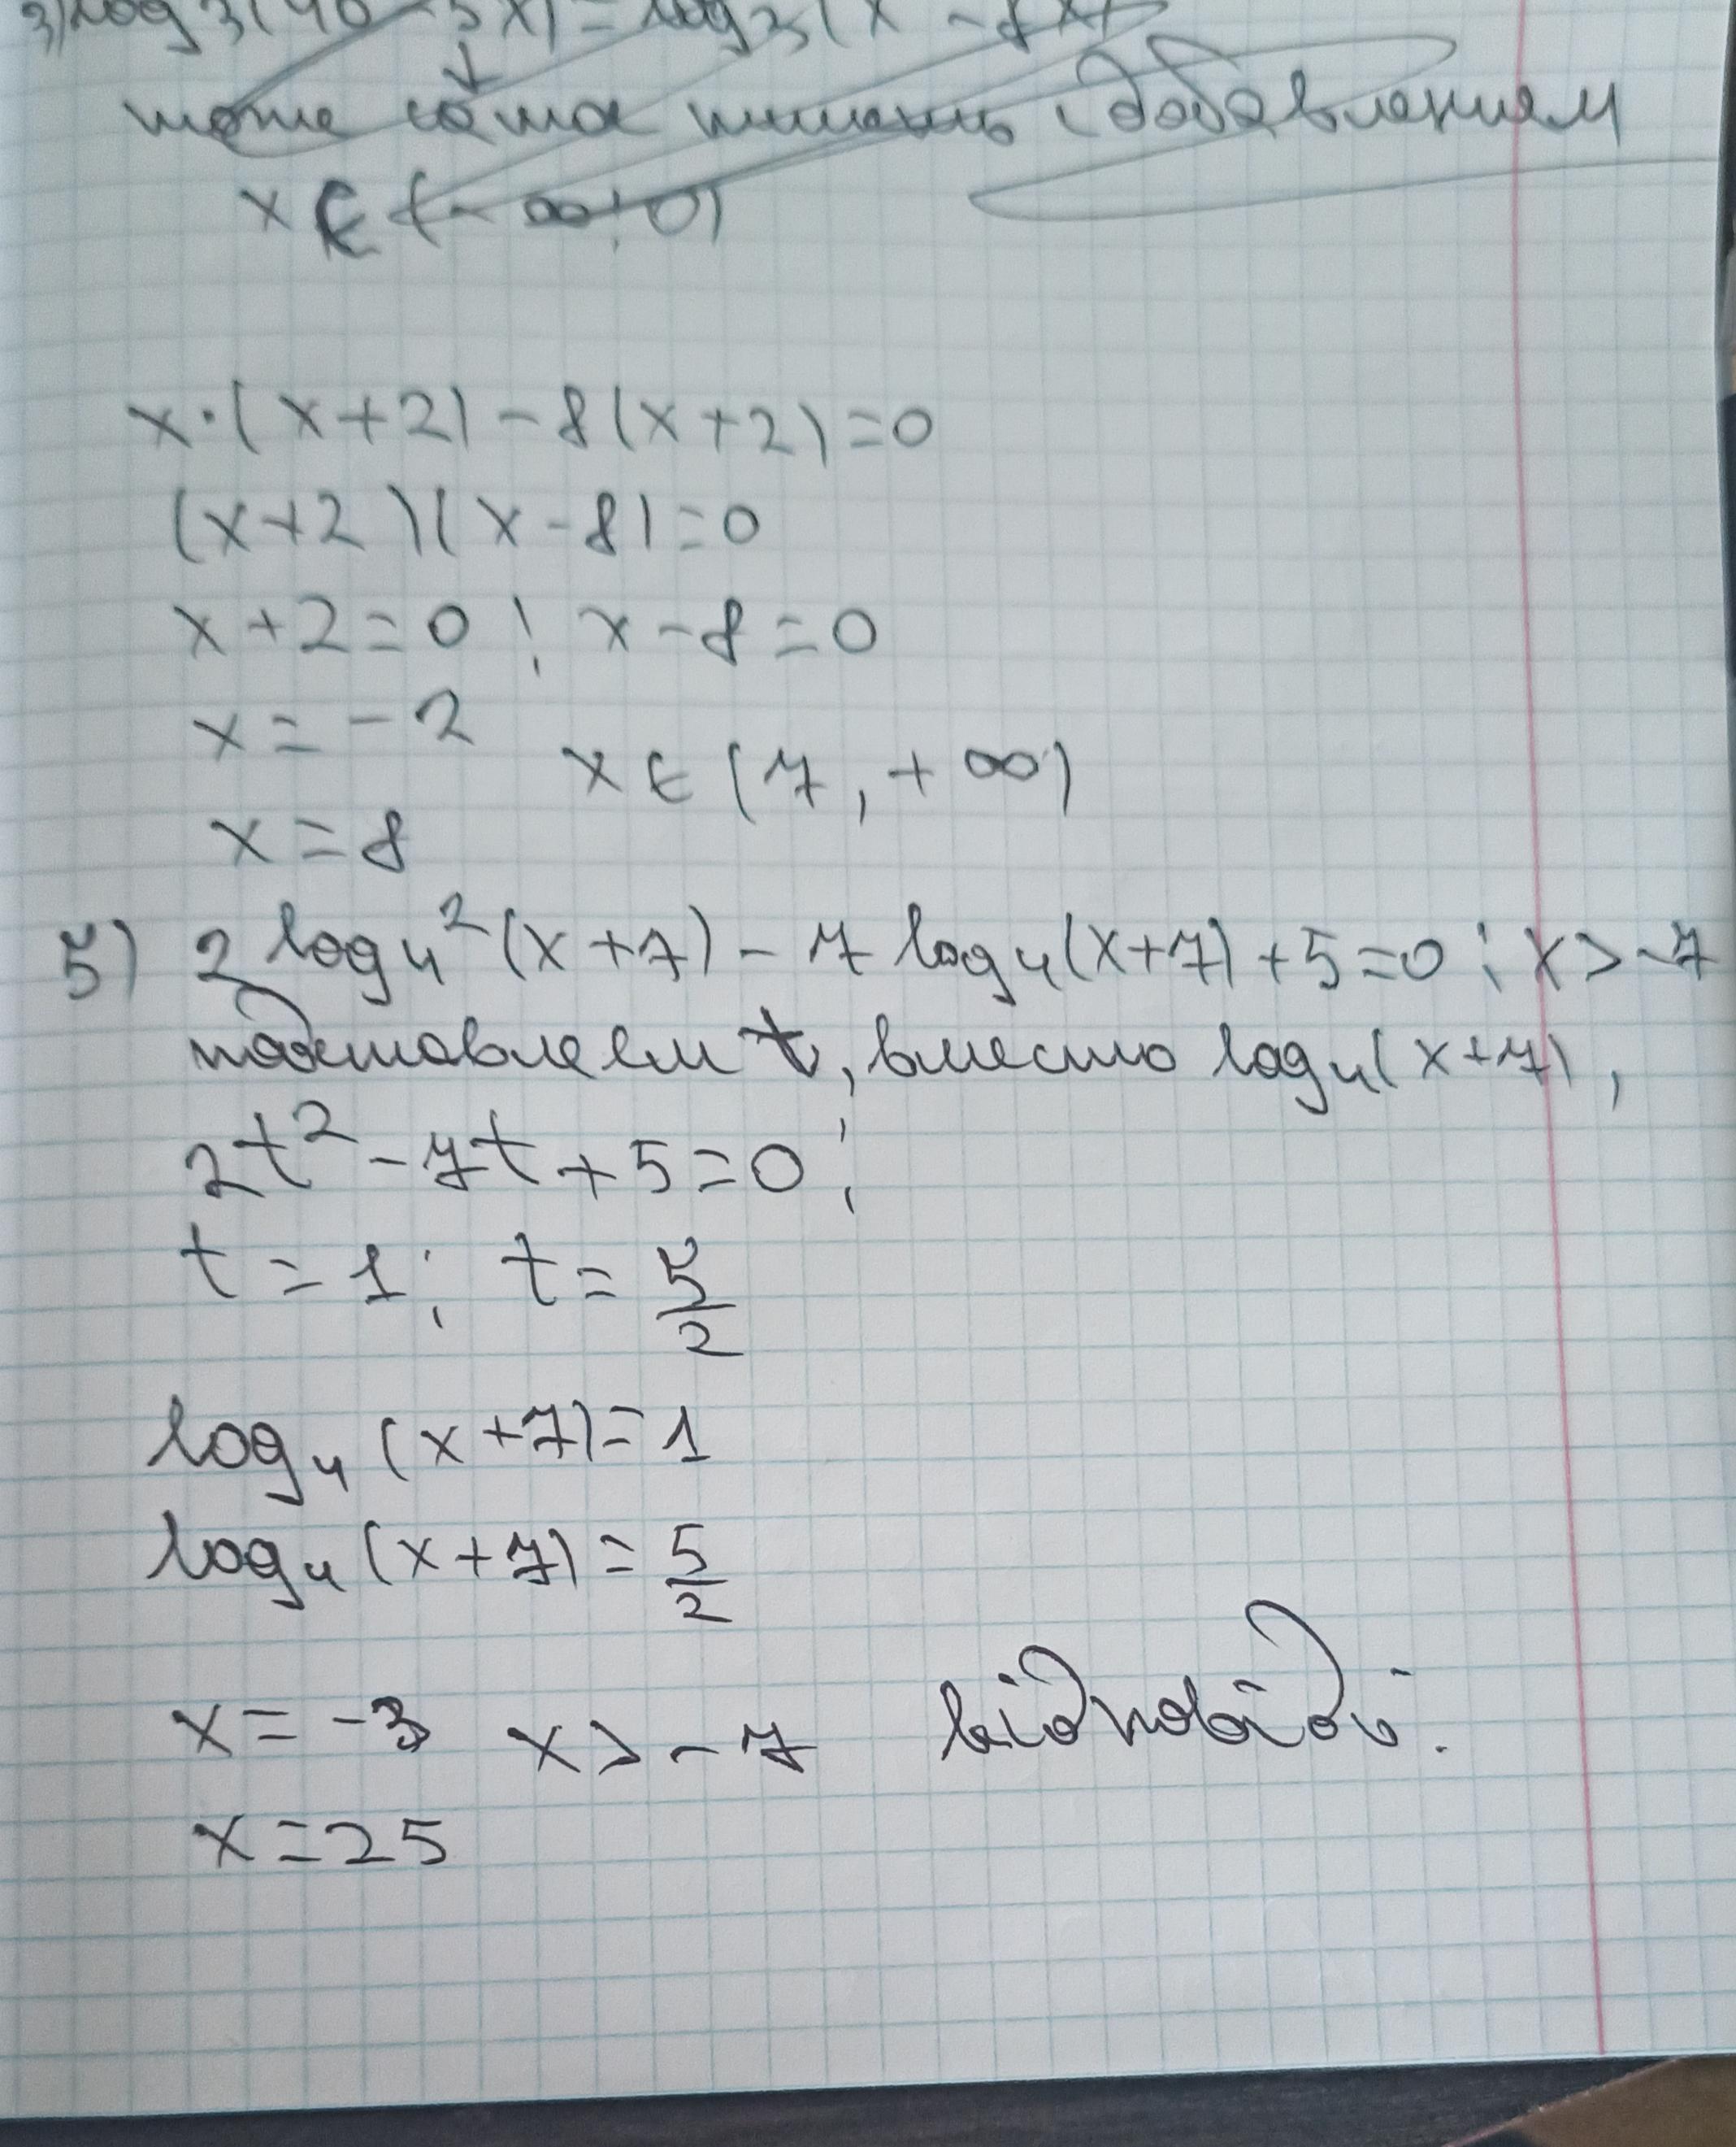 3) log₃(40 - 5x) = log₃(x - 8x)
x ∈ (-∞; 0)
x·(x+2)-8(x+2)=0
(x+2)(x-8)=0
x+2=0; x-8=0
x=-2
x∈(7,+∞)
x=8
5) 2log₄²(x+7)-7log₄(x+7)+5=0; x>-7
подставляем t, вместо log₄(x+7),
2t²-7t+5=0;
t=1; t=5/2
log₄(x+7)=1
log₄(x+7)=5/2
x=-3 x>-7 відповіді.
x=25